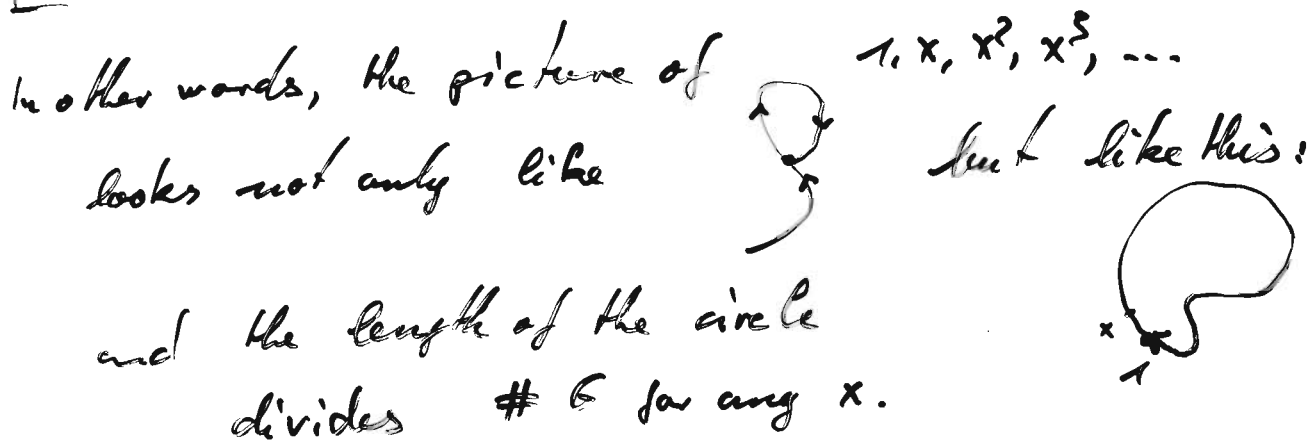 In other words, the picture of 1, x, x², x³, ...
looks not only like but like this:
x
1
and the length of the circle
divides # G for any x.